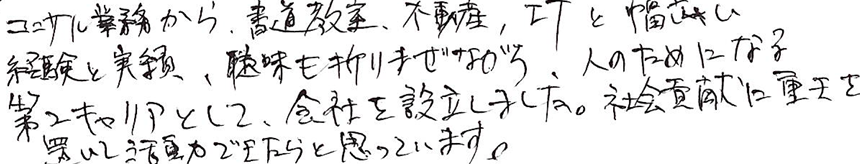 コンサル業務から、書道教室、不動産、ITと幅広い
経験と実績、趣味も折りまぜながら、人のためになる
第2キャリアとして、会社を設立しました。社会貢献に重点を
置いて活動できたらと思っています。